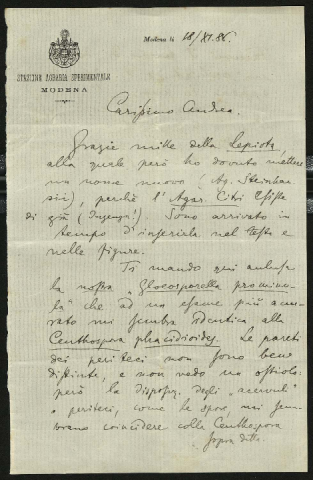 Modena li 18/XI.86.
STAZIONE AGRARIA SPERIMENTALE
MODENA
Carissimo Andrea.
Grazie mille della Lepiota,
alla quale però ho dovuto mettere
un nome nuovo (Ag.
sii), perchè l'Agar. Citri esiste
di già (Inzenga!). Sono arrivato in
tempo d'inserirla nel testo e
nelle figure.
Ti mando qui
la nostra "Gloeosporella
la" che ad un esame più accu-
rato mi sembra identica alla
Ceuthospora phacidioides. Le pareti
dei periteci non sono bene
distinte, e non vedo un ostiolo.
però la disposiz. degli "acervuli"
o periteci, come le spore, mi sem-
brano coincidere colle Ceuthospora
sopra detta.